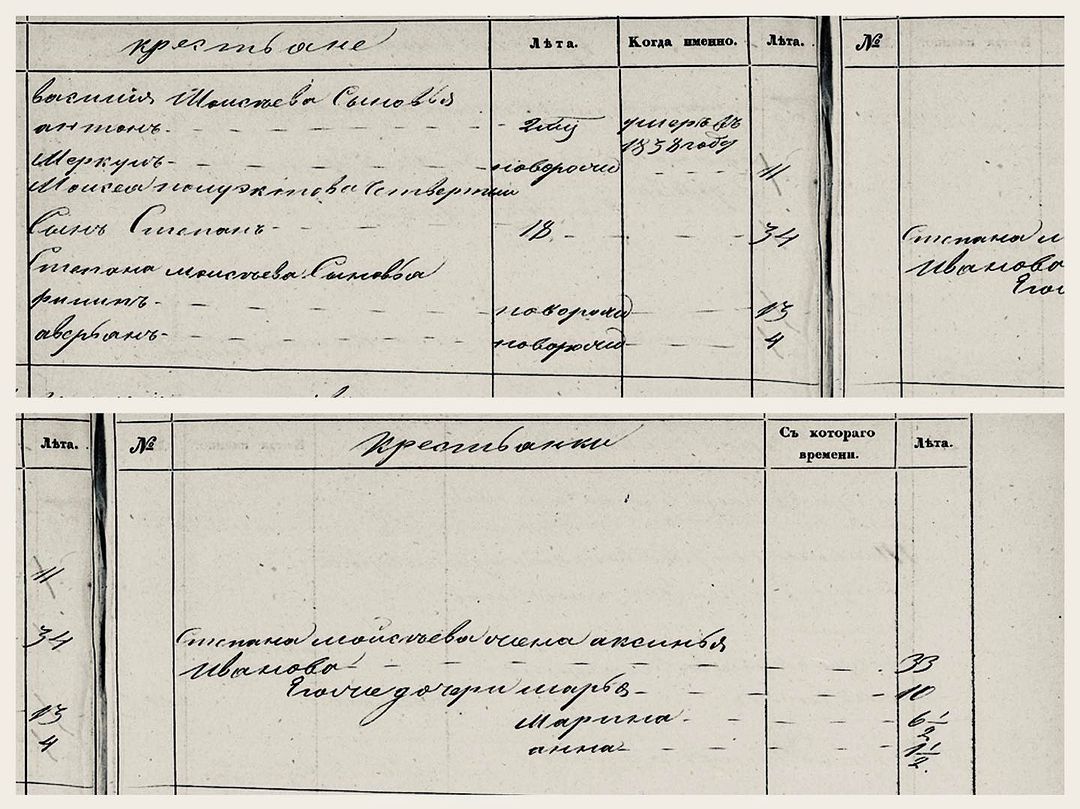 крестьяне Лѣта. Когда именно. Лѣта. №
Василия Моисѣева Сыновья
антонъ 2 умеръ въ
1858 году
Меркулъ новорожд 11
Моисея Четвертый
Сынъ Степанъ 18 34
Степана моисѣева Сыновья
филипъ новорожд 13
аверьянъ новорожд 4
Степана м
Иванова
Его
Лѣта. № Крестьянки Съ котораго времени. Лѣта.
11
34 Степана мойсѣева жена аксинья
Иванова 33
Его же дочери марья 10
13 Марина 6 1/2
4 анна 1 1/2.